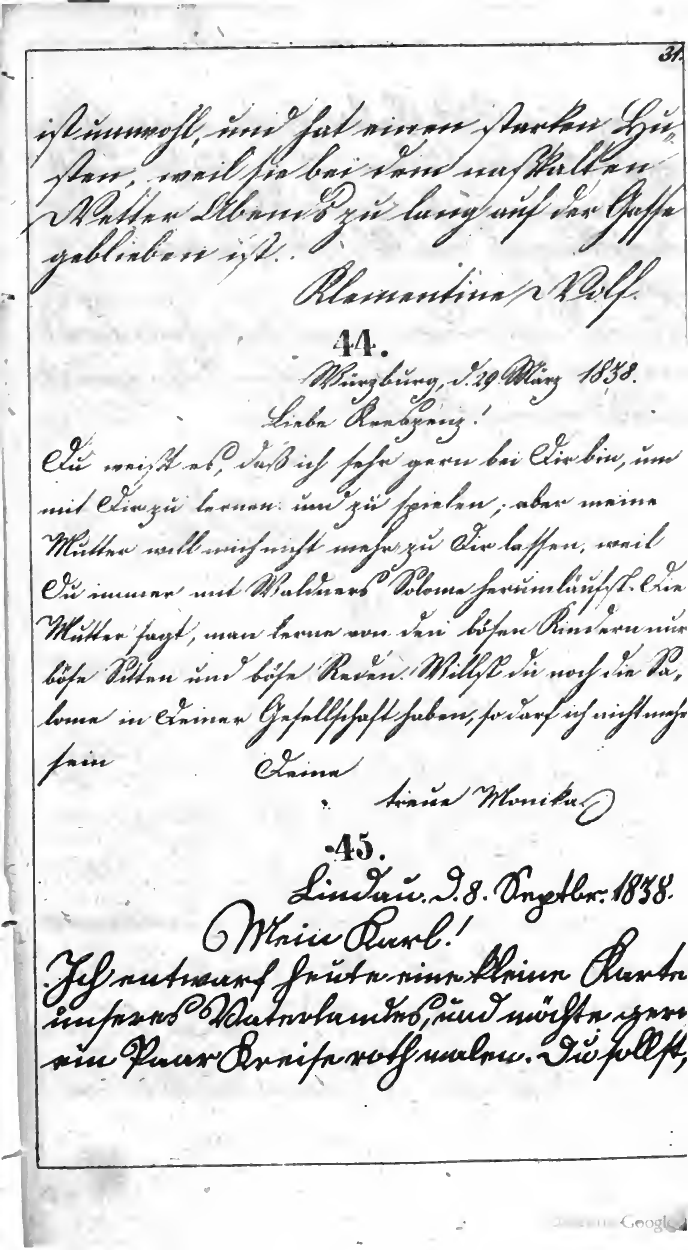 31.
ist unwohl, und hat einen starken Hu-
sten, weil sie bei dem naßkalten
Wetter Abends zu lang auf der Gasse
geblieben ist.
Klementine Wolf.
44.
Würzburg, d. 29. März 1838.
Liebe Kreszenz!
Du weißt es, daß ich sehr gern bei Dir bin, um
mit Dir zu lernen und zu spielen; aber meine
Mutter will mich nicht mehr zu Dir lassen, weil
Du immer mit Waldners Salome herumläufst. Die
Mutter sagt, man lerne von den bösen Kindern nur
böse Sitten und böse Reden. Willst du noch die Sa-
lome in Deiner Gesellschaft haben, so darf ich nicht mehr
sein Deine
treue Monika
45.
Lindau, d. 8. Septbr. 1838.
Mein Karl!
Ich entwarf heute eine kleine Karte
unseres Vaterlandes, und möchte gern
ein Paar Kreise roth malen. Du sollst,
Google